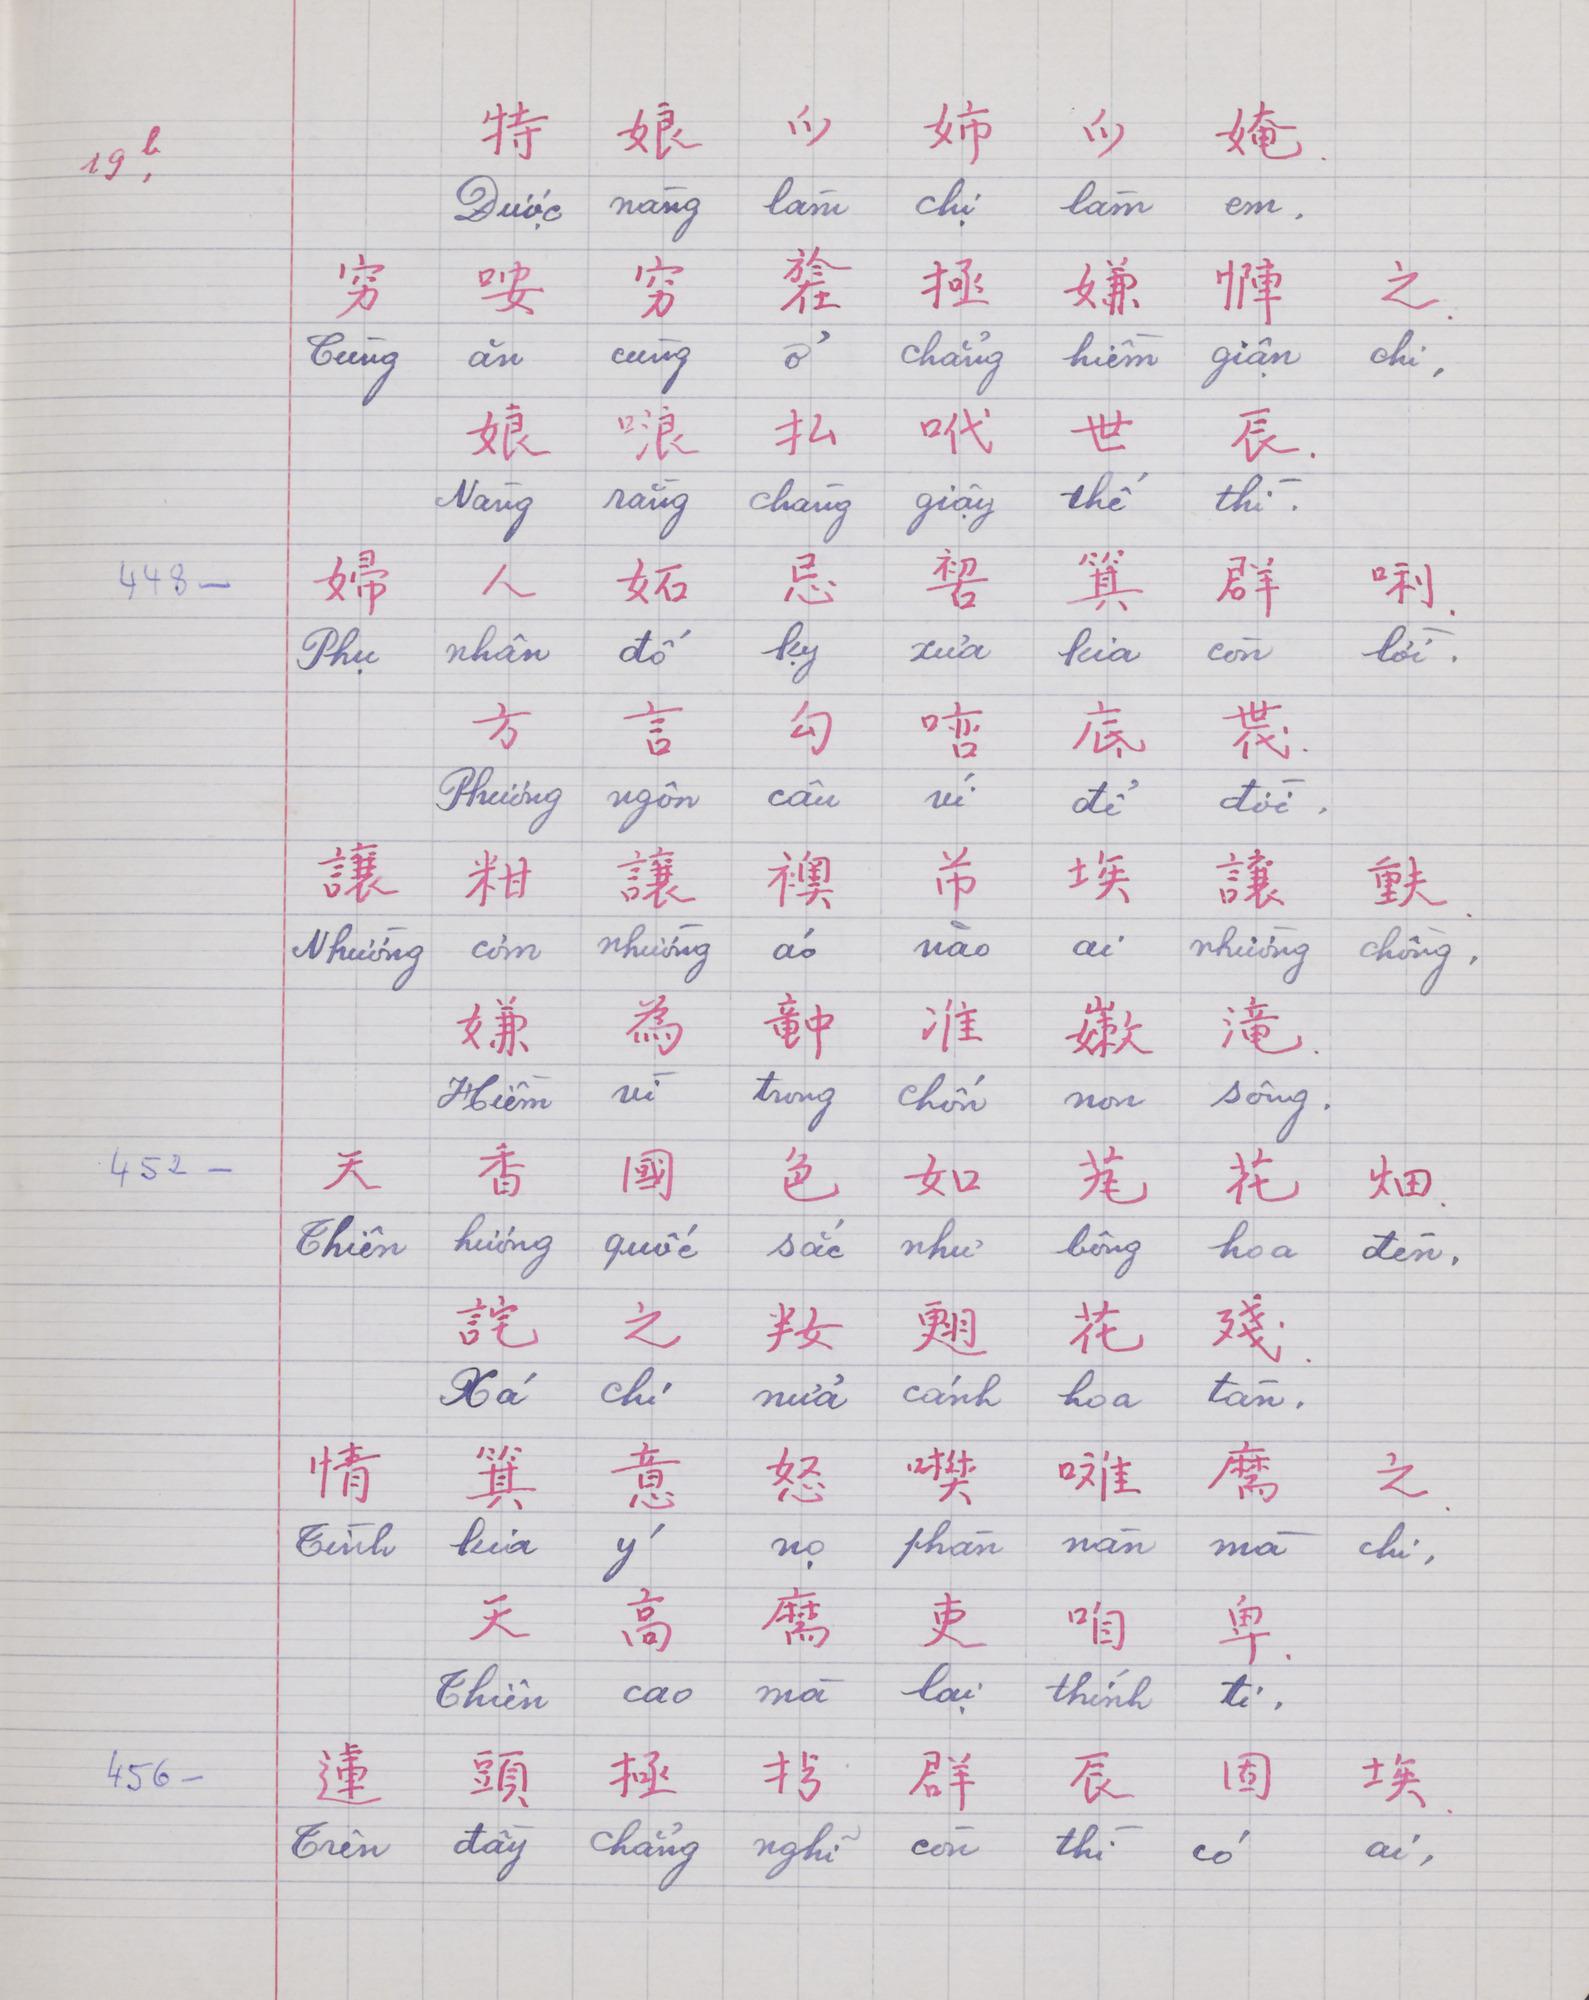 19b,
特 娘 𫜵 姉 𫜵 媕.
Được nàng làm chị làm em.
穷 咹 穷 𬀦 極 嫌 惲 之.
Cùng ăn cùng ở chẳng hiềm giận chi,
娘 哴 払 𠰺 世 辰.
Nàng rằng chàng giậy thế thì.
448 — 婦 人 妬 忌 𠸗 箕 群 唎.
Phụ nhân đố kỵ xưa kia còn lời.
方 言 勾 㗑 底 𠁀.
Phương ngôn câu ví để đời,
讓 粓 讓 襖 芇 埃 讓 𫯳.
Nhường cơm nhường áo nào ai nhường chồng,
嫌 為 𥪝 准 𡽫 滝.
Hiềm vì trong chốn non sông.
452 — 天 香 國 色 如 芼 花 畑.
Thiên hương quốc sắc như bông hoa đèn,
詫 之 姅 𦑃 花 殘.
Xá chi nửa cánh hoa tàn.
情 箕 意 怒 㘔 㖡 麿 之.
Tình kia ý nọ phàn nàn mà chi,
天 高 麿 吏 咱 卑.
Thiên cao mà lại thính ti.
456 — 連 頭 極 𢪀 群 辰 固 埃.
Trên đầy chẳng nghĩ còn thì có ai,